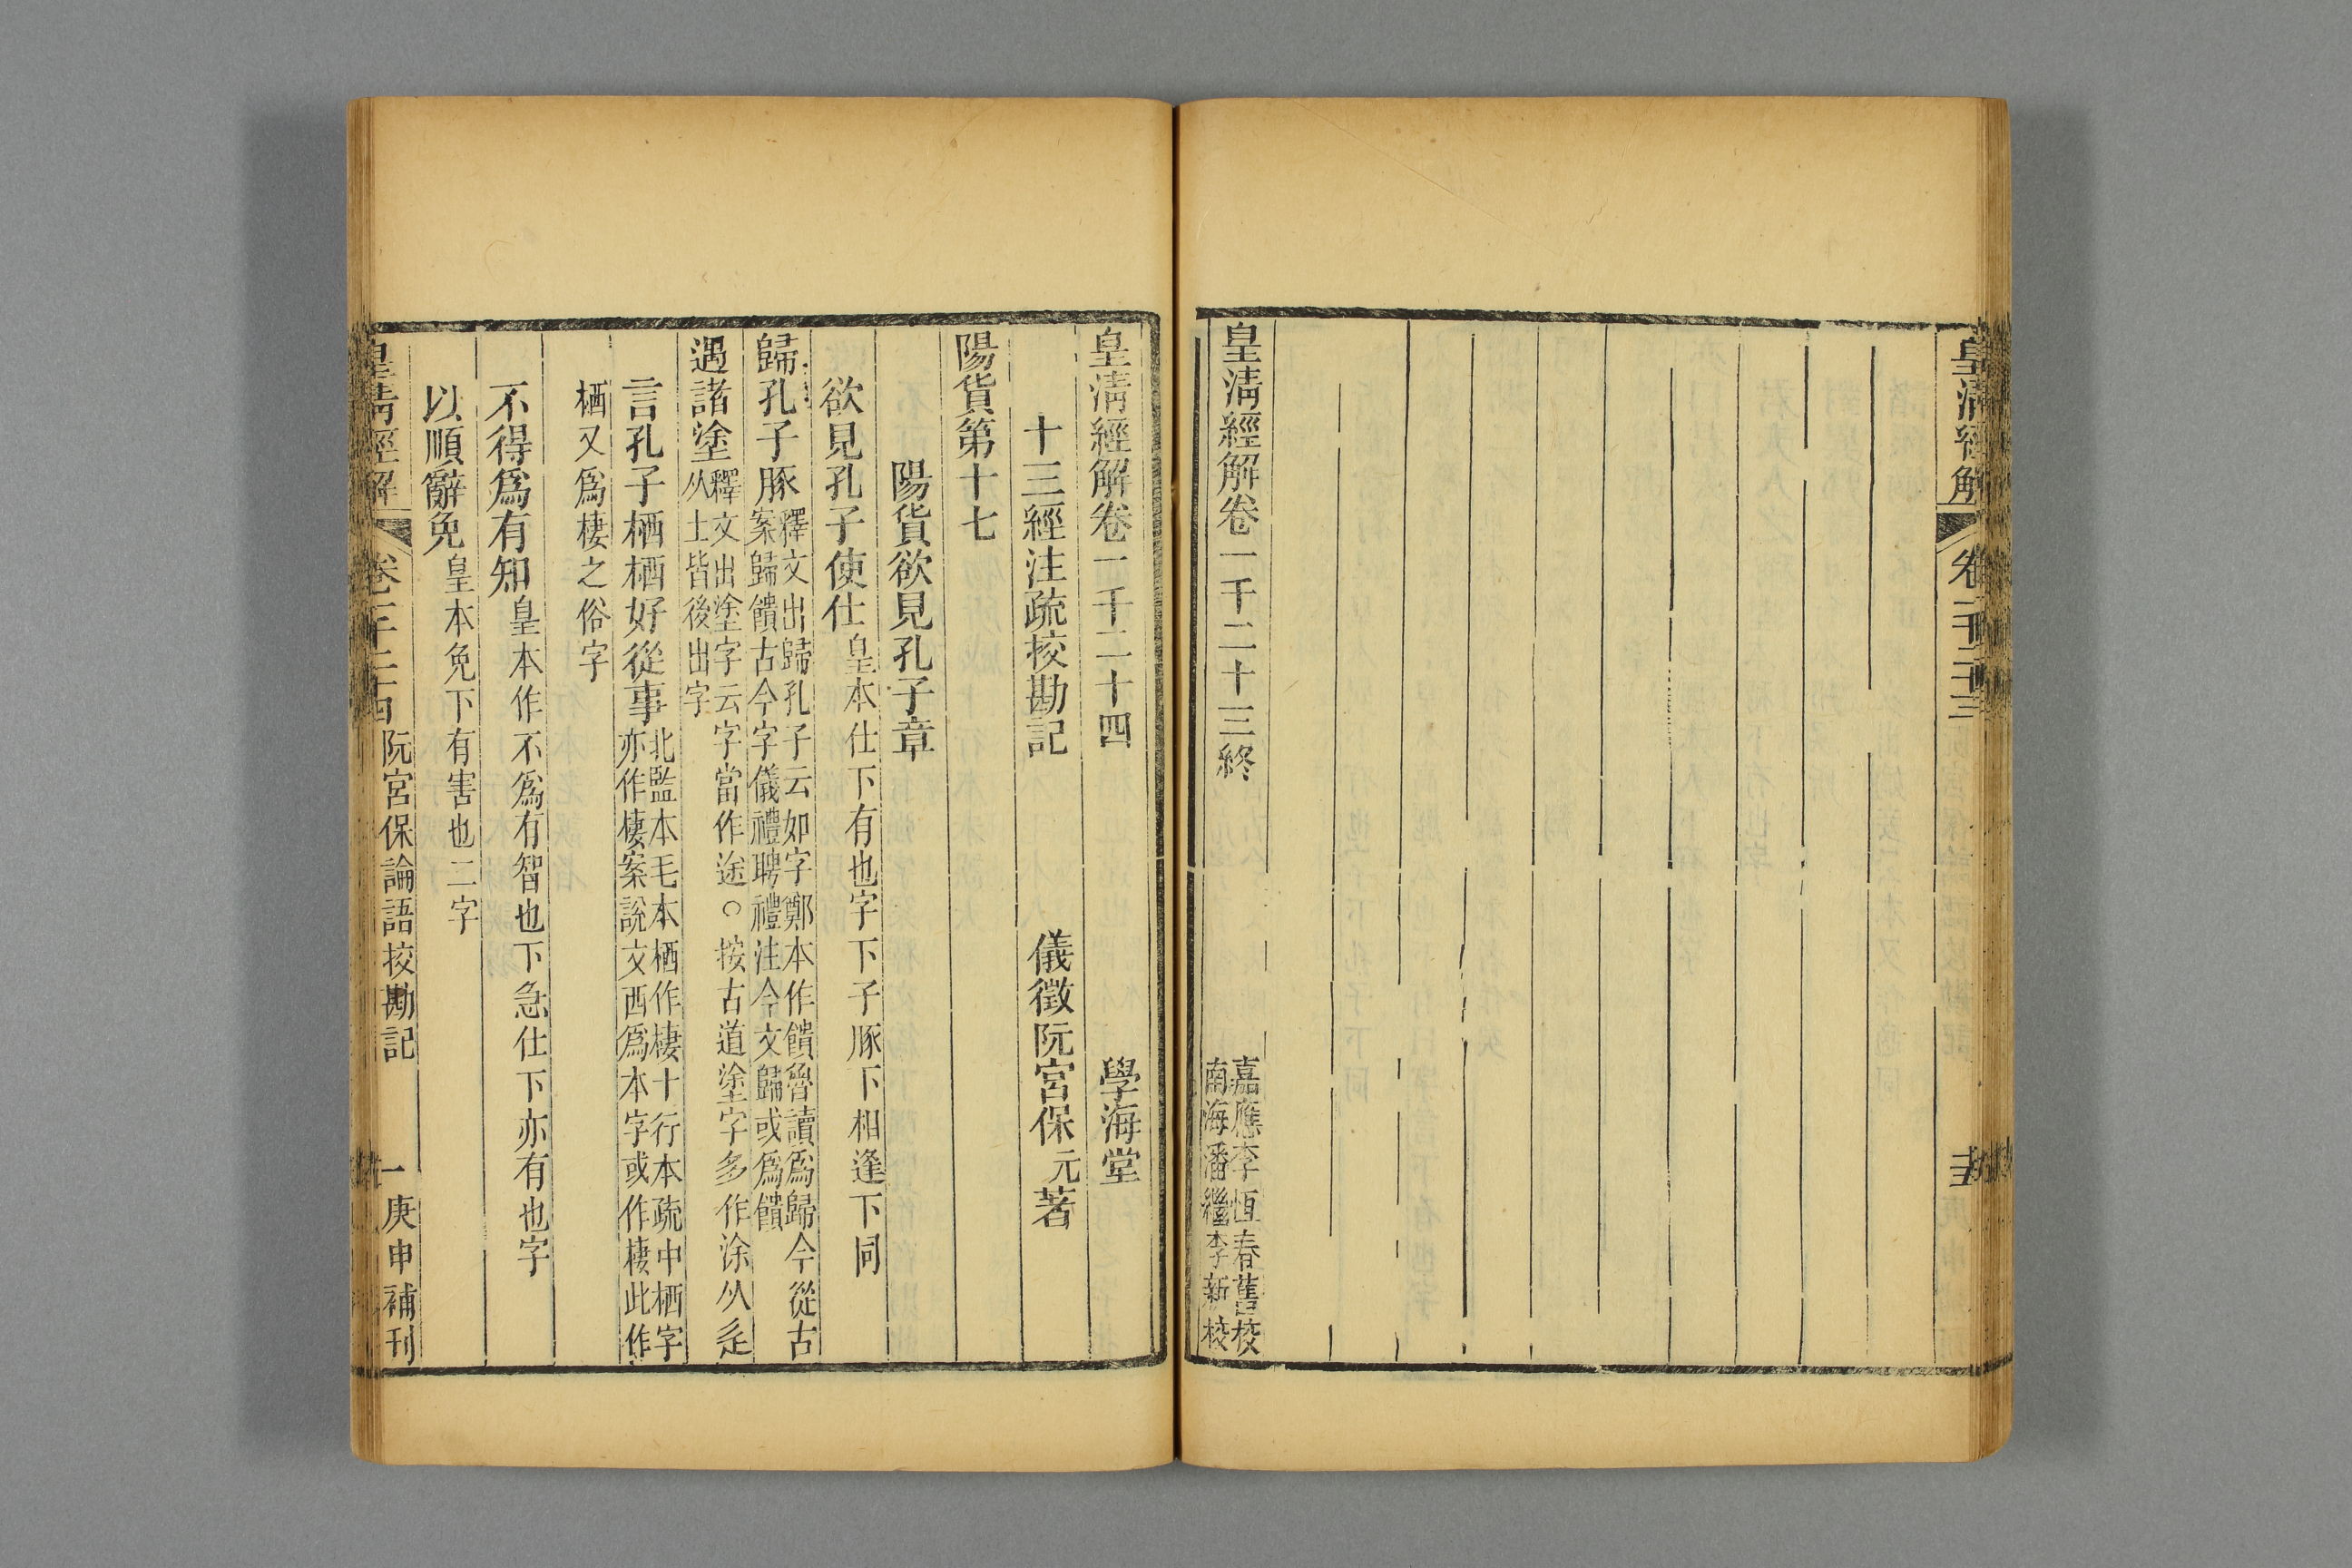 皇清經解
卷一千二十三
皇清經解卷一千二十三終
嘉應李恆春舊校
南海潘繼李新校
皇清經解卷一千二十四
學海堂
十三經注疏挍勘記
儀徵阮宮保元著
陽貨第十七
陽貨欲見孔子章
欲見孔子使仕皇本仕下有也字下子豚下相逢下同
歸孔子豚釋文出歸孔子云如字鄭本作饋魯讀爲歸今從古
案歸饋古今字儀禮聘禮注今文歸或爲饋
遇諸塗釋文出塗字云字當作途○按古道塗字多作涂从辵
从土皆後出字
言孔子栖栖好從事北監本毛本栖作棲十行本疏中栖字
亦作棲案說文西爲本字或作棲此作
栖又爲棲之俗字
不得爲有知皇本作不爲有智也下急仕下亦有也字
以順辭免皇本免下有害也二字
皇清經解
卷一千二十四
阮宮保論語挍勘記
一
庚申補刊